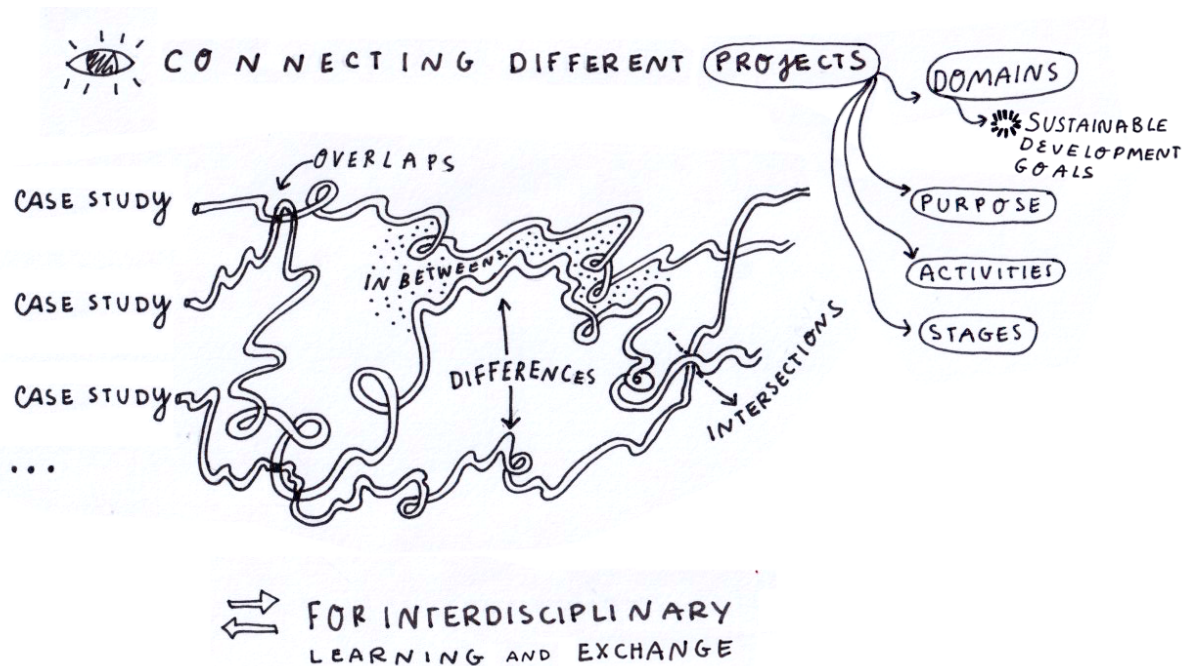 CONNECTING DIFFERENT PROJECTS
DOMAINS
SUSTAINABLE
DEVELOPMENT
GOALS
PURPOSE
ACTIVITIES
STAGES
OVERLAPS
CASE STUDY
IN BETWEENS
CASE STUDY
DIFFERENCES
CASE STUDY
INTERSECTIONS
...
FOR INTERDISCIPLINARY
LEARNING AND EXCHANGE